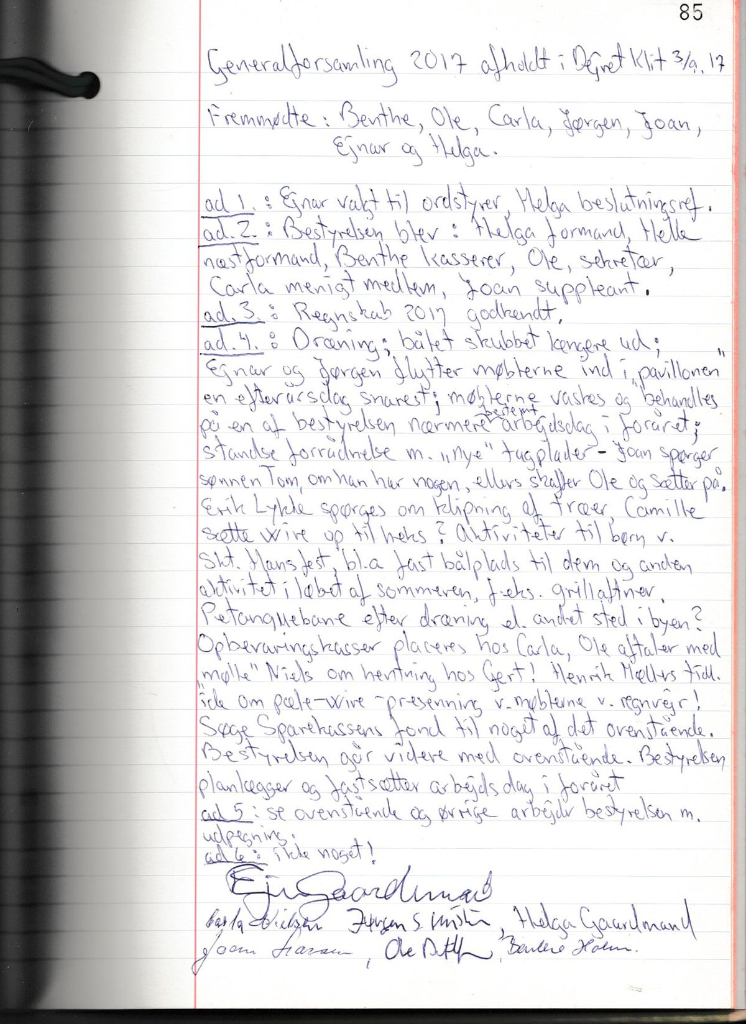 85
Generalforsamling 2017 afholdt i Dejret Klit 3/9. 17
Fremmødte : Benthe, Ole, Carla, Jørgen, Joan,
Ejnar og Helga.
ad 1. : Ejnar valgt til ordstyrer, Helga beslutningsref.
ad. 2. : Bestyrelsen blev : Helga formand, Helle
næstformand, Benthe kasserer, Ole, sekretær,
Carla menigt medlem, Joan suppleant.
ad. 3. : Regnskab 2017 godkendt.
ad. 4. : Dræning; bålet skubbet længere ud;
Ejnar og Jørgen flytter møblerne ind i "pavillonen"
en efterårsdag snarest; møblerne vaskes og behandles
på en af bestyrelsen nærmere bestemt arbejdsdag i foråret;
standse forrådnelse m. "nye" tagplader - Joan spørger
sønnen Tom, om han har nogen, ellers skaffer Ole og sætter på.
Erik Lykke spørges om klipning af træer, Camille
sætte wire op til heks? Aktiviteter til børn v.
Skt. Hansfest, bl.a fast bålplads til dem og anden
aktivitet i løbet af sommeren, f.eks. grillaftner.
Petanquebane efter dræning el. andet sted i byen?
Opbevaringskasser placeres hos Carla, Ole aftaler med
"mølle" Niels om hentning hos Gert! Henrik Møllers tidl.
ide om pæle-wire-presenning v. møblerne v. regnvejr!
Søge Sparekassens fond til noget af det ovenstående.
Bestyrelsen går videre med ovenstående. Bestyrelsen
planlægger og fastsætter arbejdsdag i foråret
ad 5 : se ovenstående og øvrige arbejder bestyrelsen m.
udpegning.
ad 6 : ikke noget!
Ejnar Gaardmand
Carla Nielsen Jørgen S. , Helga Gaardmand
Joan , Ole , Benthe Holm.